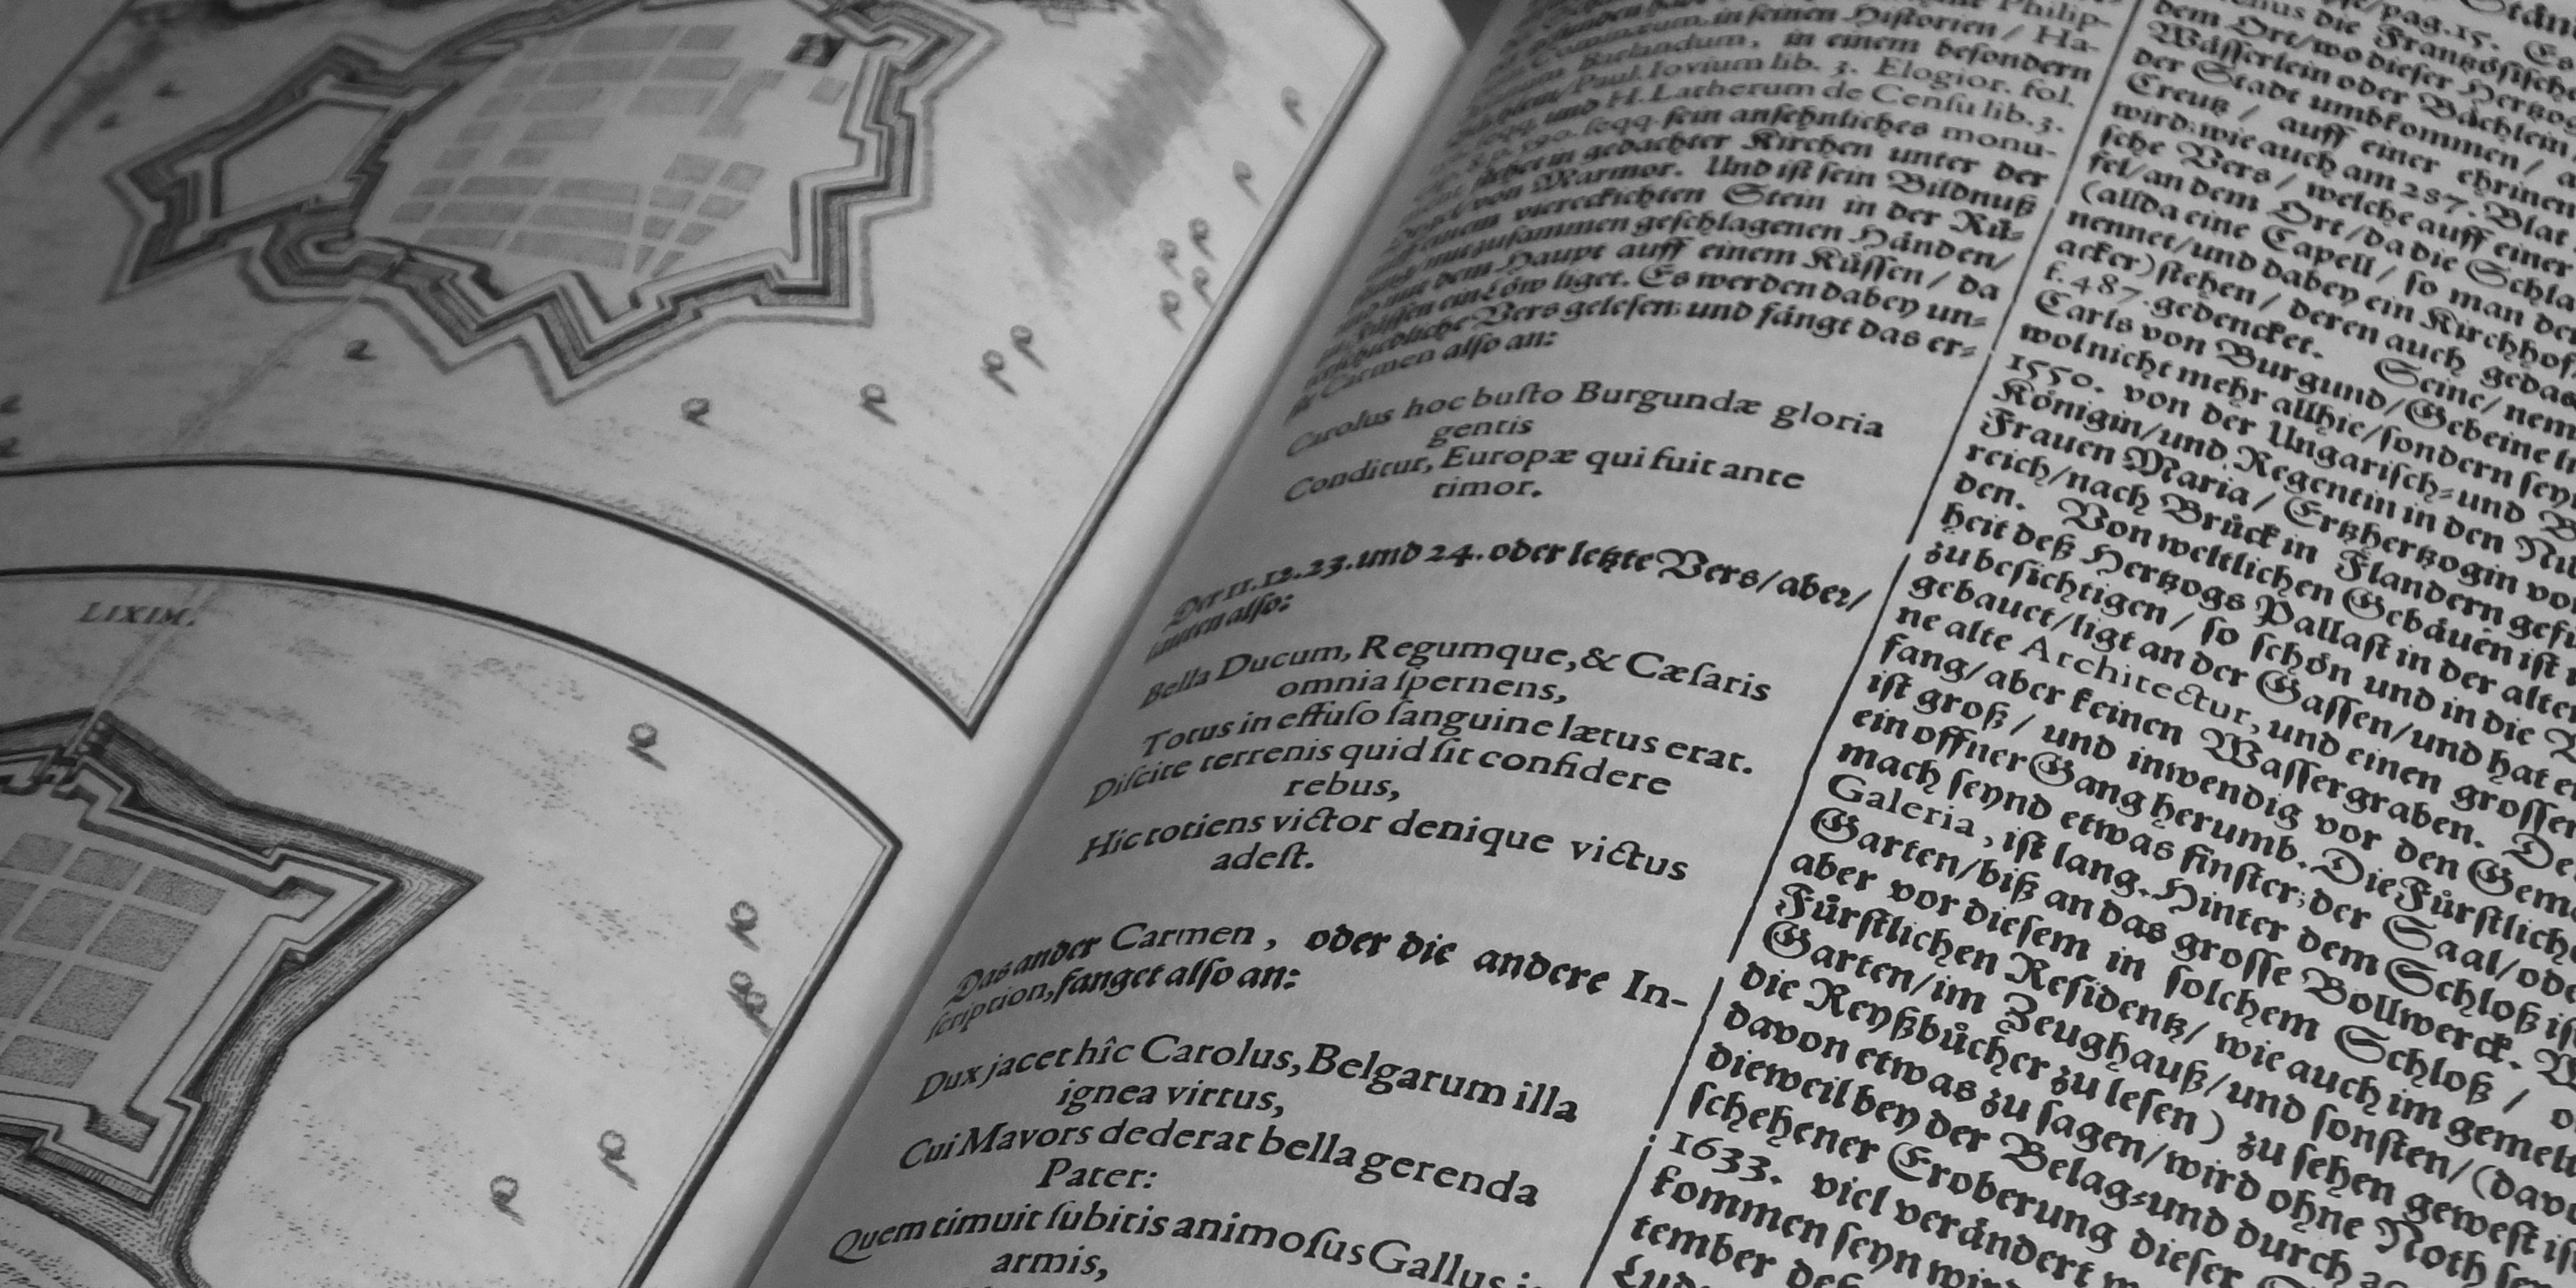 LIXIM.
Philip-
in seinen Historien / Ha-
Barlandum, in einem besondern
Paul. Iovium lib. 3. Elogior. fol.
und H. Latherum de Censu lib. 3.
sein ansehnliches monu-
in gedachter Kirchen unter der
von Marmor. Und ist sein Bildnuß
einem viereckichten Stein in der Rü-
zusammen geschlagenen Händen/
mit dem Haupt auff einem Küssen / da
ein Löw liget. Es werden dabey un-
Vers gelesen: und fängt das er-
Carmen also an:
Carolus hoc busto Burgundæ gloria
gentis
Conditur, Europæ qui fuit ante
timor.
Der 11.12.23. und 24. oder letzte Vers/ aber/
lauten also:
Bella Ducum, Regumque, & Cæsaris
omnia spernens,
Totus in effuso sanguine lætus erat.
Discite terrenis quid sit confidere
rebus,
Hic totiens victor denique victus
adest.
Das ander Carmen, oder die andere In-
scription, fanget also an:
Dux jacet hîc Carolus, Belgarum illa
ignea virtus,
Cui Mavors dederat bella gerenda
Pater:
Quem timuit subitis animosus Gallus
armis,
pag. 15. Es
die Frantzösische
dem Ort/ wo dieser Hertzog
Wässerlein oder Bächlein
der Stadt umbkommen /
Creutz / auff einer ehrinen
wird: wie auch am 287. Blat
sche Vers / welche auff einer
fel/ an dem Ort / da die Schla
(allda eine Capell / so man den
nennet/ und dabey ein Kirchhof
acker) stehen / deren auch gedac
f. 487. gedencket. Seine/ nem
Carls von Burgund/ Gebeine
wol nicht mehr allhie/ sondern seyn
1550. von der Ungarisch- und B
Königin/ und Regentin in den Ni
Frauen Maria / Ertzhertzogin vo
reich/ nach Brück in Flandern gef
den. Von weltlichen Gebäuen ist
heit deß Hertzogs Pallast in der alten
zu besichtigen / so schön und in die
gebauet/ ligt an der Gassen/ und hat
ne alte Architectur, und einen grossen
fang/ aber keinen Wassergraben. De
ist groß / und inwendig vor den Gem
ein offner Gang herumb. Die Fürstlich
mach seynd etwas finster; der Saal/ ode
Galeria, ist lang. Hinter dem Schloß is
Garten/ biß an das grosse Bollwerck.
aber vor diesem in solchem Schloß /
Fürstlichen Residentz/ wie auch im gemel
Garten/ im Zeughauß/ und sonsten/ (dav
die Reyßbücher zu lesen) zu sehen gewest
davon etwas zu sagen/ wird ohne Noth
dieweil bey der Belag- und durch
schehener Eroberung dieser
1633. viel verändert
kommen seyn wird
tember deß